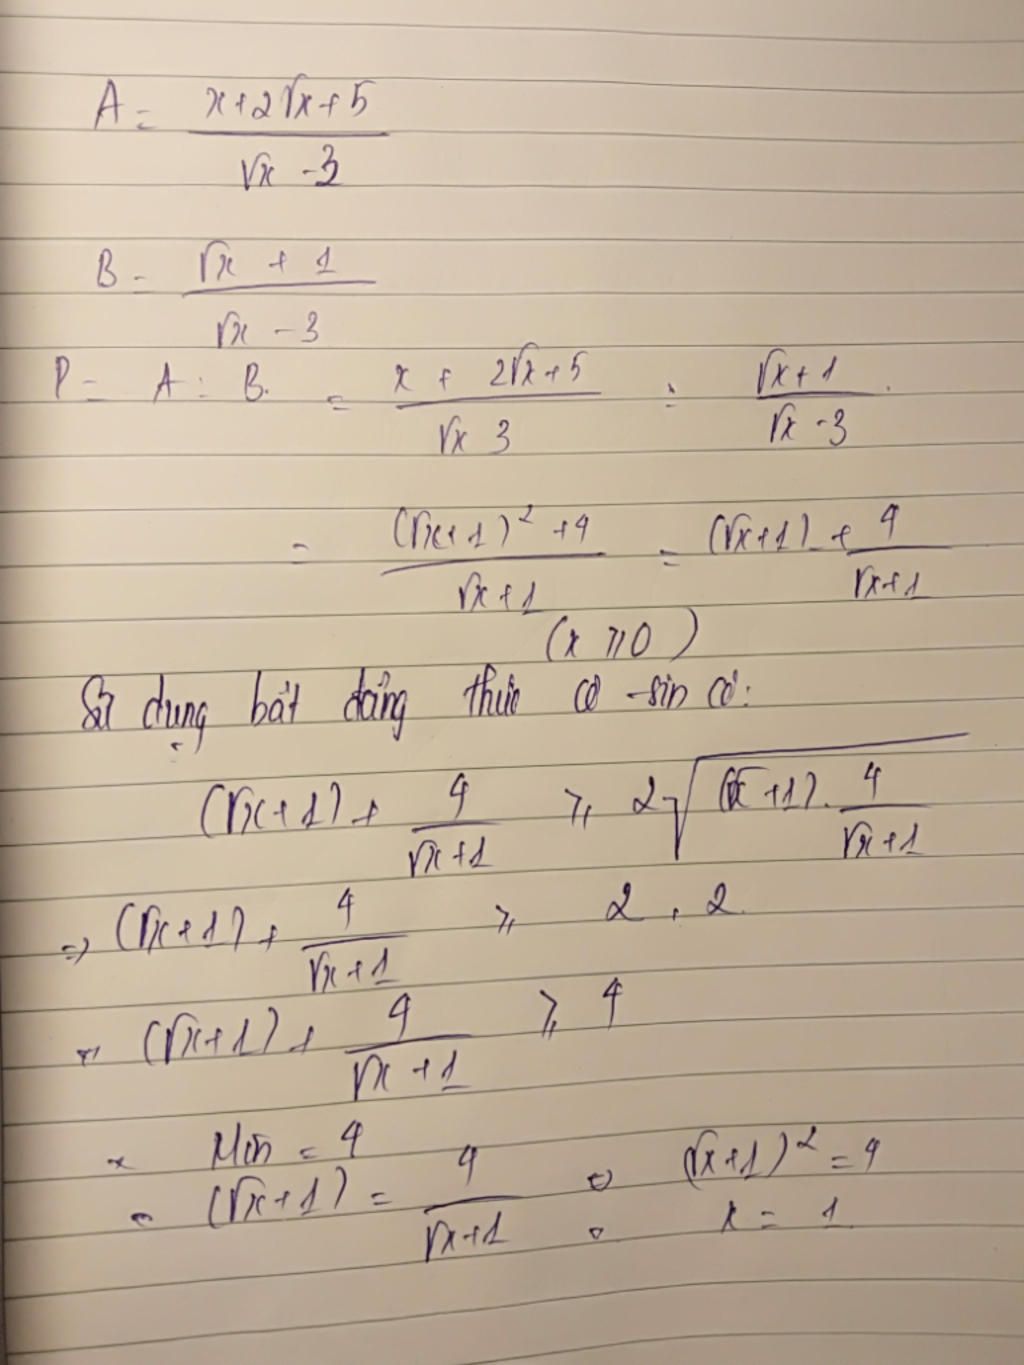 A = (x + 2√x + 5) / (√x - 3)
B = (√x + 1) / (√x - 3)
P = A : B. = (x + 2√x + 5) / (√x 3) : (√x + 1) / (√x - 3).
= ((√x + 1)² + 4) / (√x + 1) = (√x + 1) + 4 / (√x + 1)
(x ⩾ 0)
Sử dụng bất đẳng thức cô - sin có:
(√x + 1) + 4 / (√x + 1) ⩾ 2√((√x + 1) . 4 / (√x + 1))
⇒ (√x + 1) + 4 / (√x + 1) ⩾ 2 . 2
(√x + 1) + 4 / (√x + 1) ⩾ 4
Min = 4
(√x + 1) = 4 / (√x + 1) ⇔ (√x + 1)² = 4
x = 1